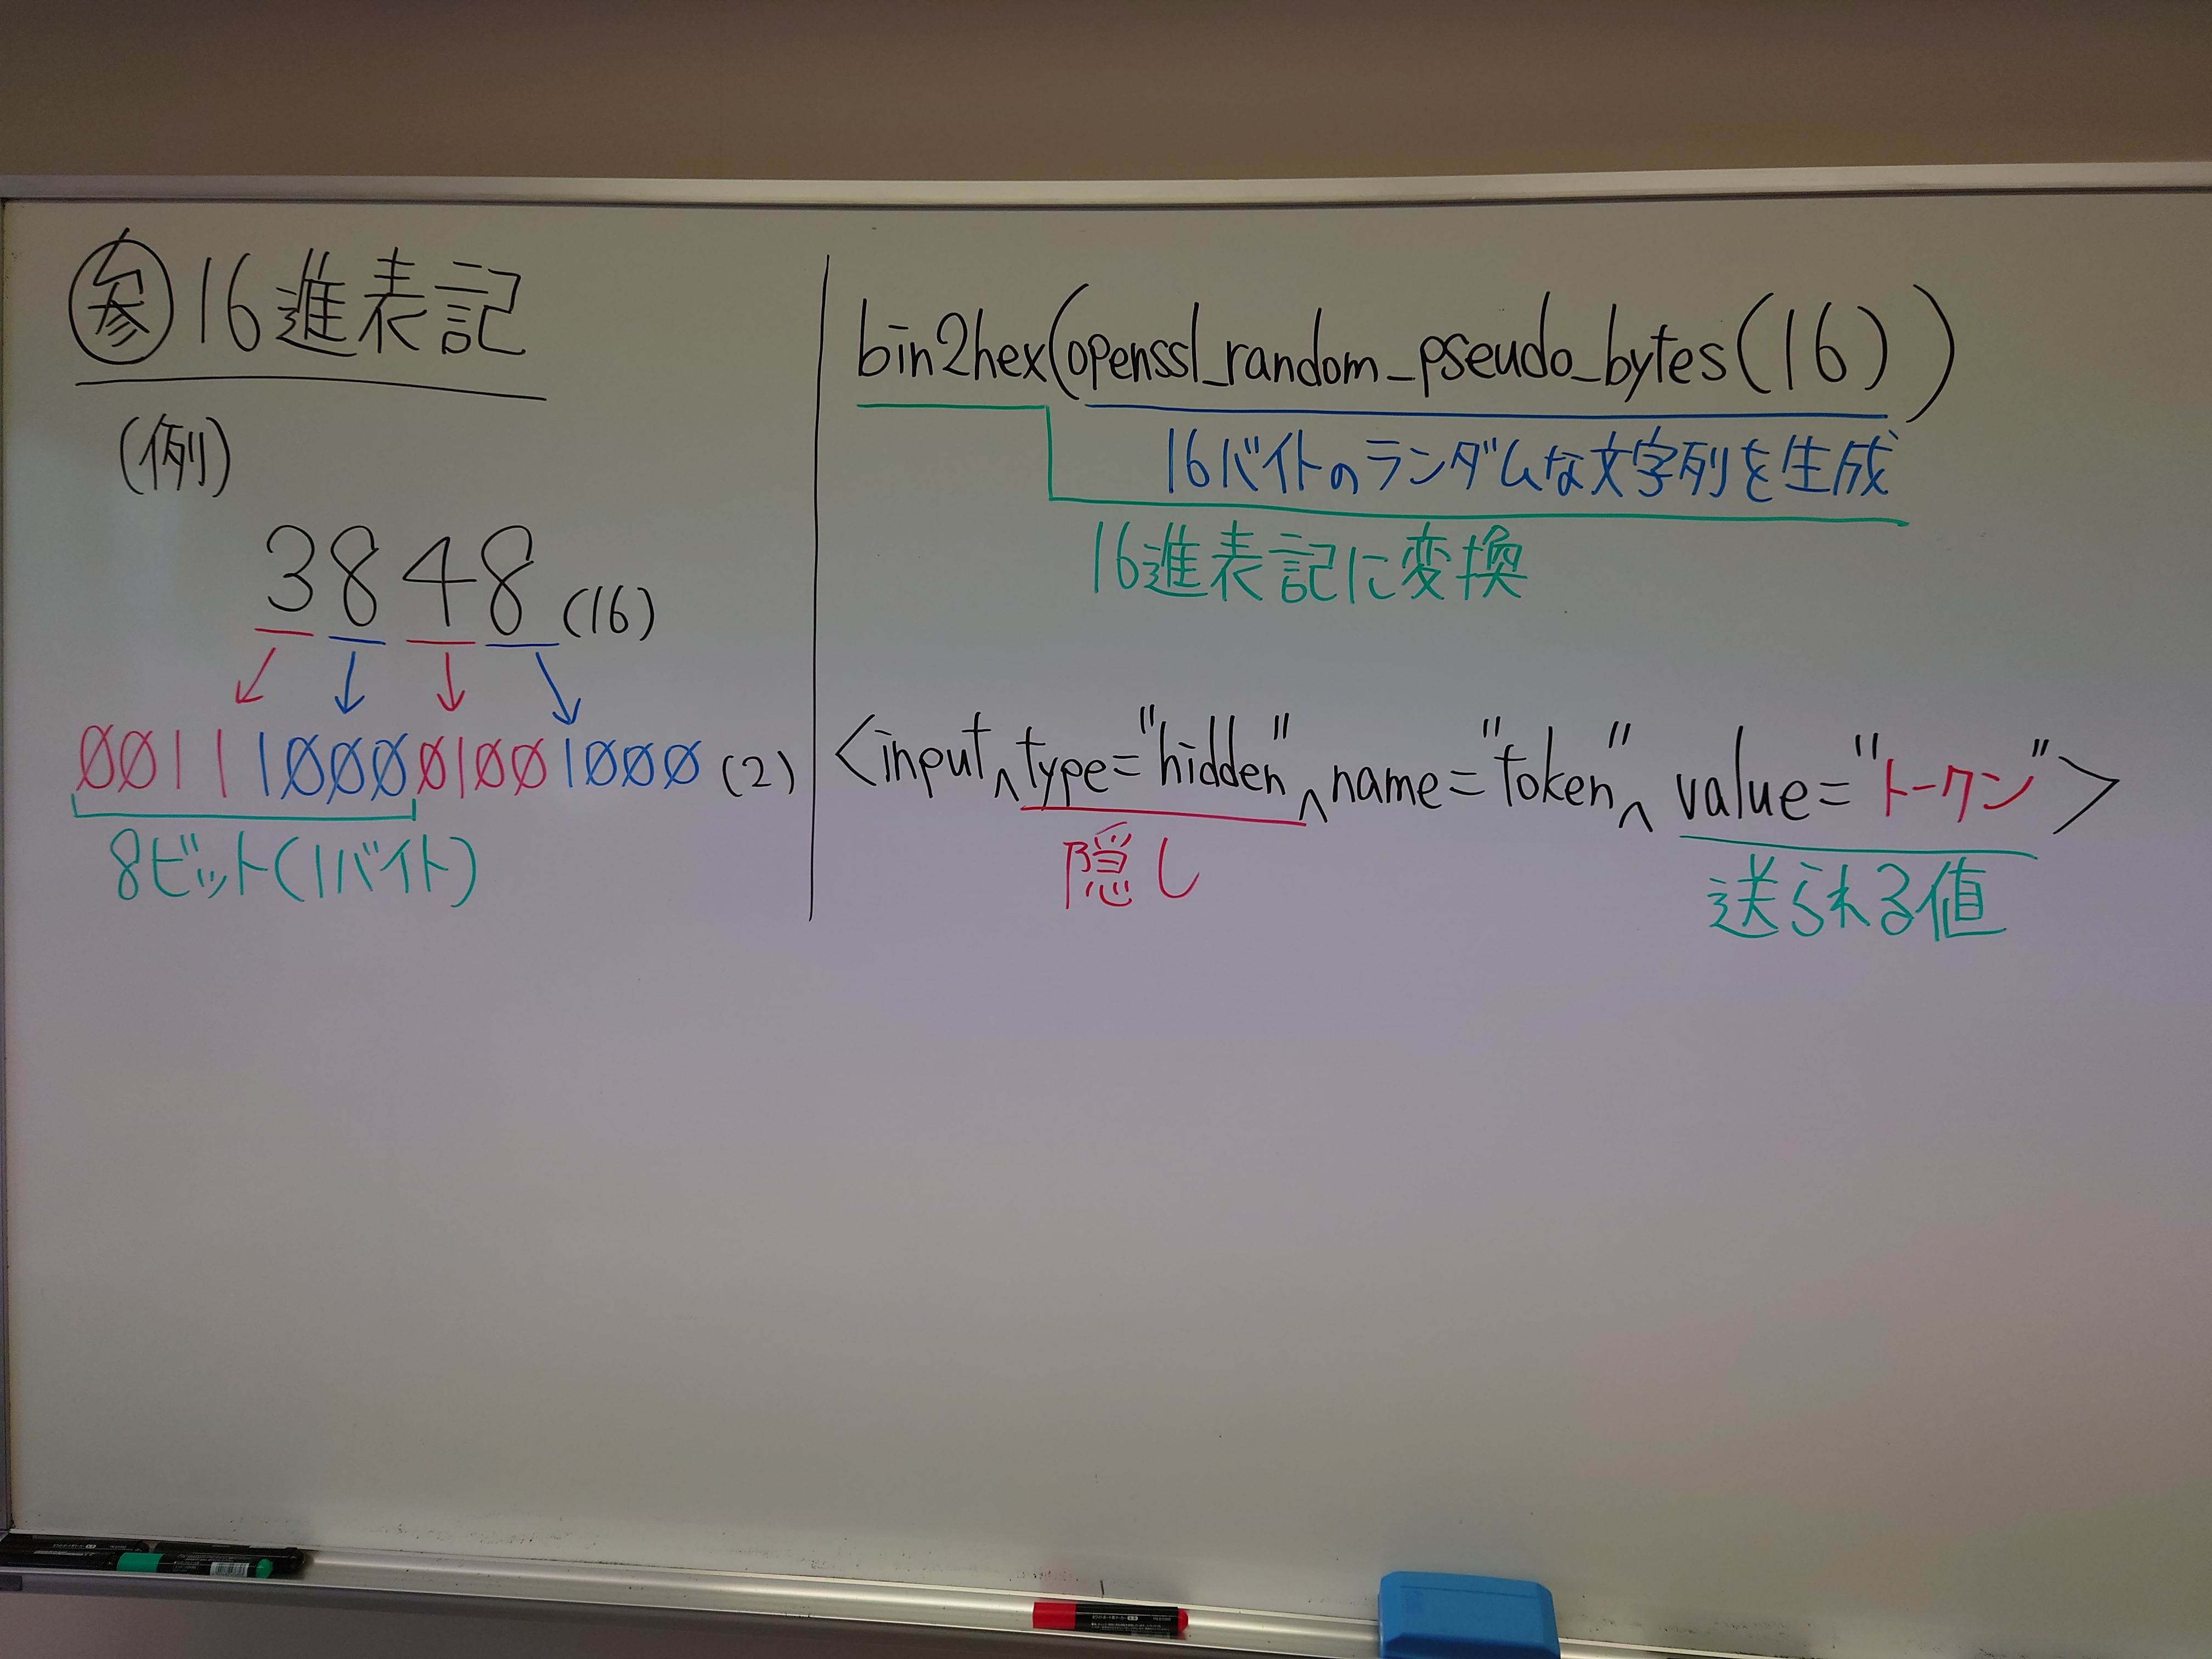 参 16進表記
(例)
3848(16)
0011100001001000(2)
8ビット(1バイト)
bin2hex(openssl_random_pseudo_bytes(16))
16バイトのランダムな文字列を生成
16進表記に変換
<input^type="hidden"^name="token"^value="トークン">
隠し
送られる値